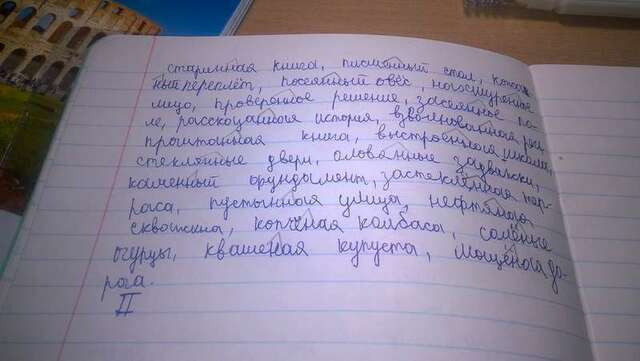 старинная книга, письменный стол, кожан-
ный переплёт, посеянный овёс, насмуренное
лицо, проверенное решение, засеянное по-
ле, рассказанная история, взволнованная
прочитанная книга, выстроенная школа,
стеклянные двери, оловянные задвижки,
каменный фундамент, застеклённая тер-
раса, пустынная улица, нефтяная
скважина, копчёная колбаса, солёные
огурцы, квашеная купуста, мощёная до-
рога.
II